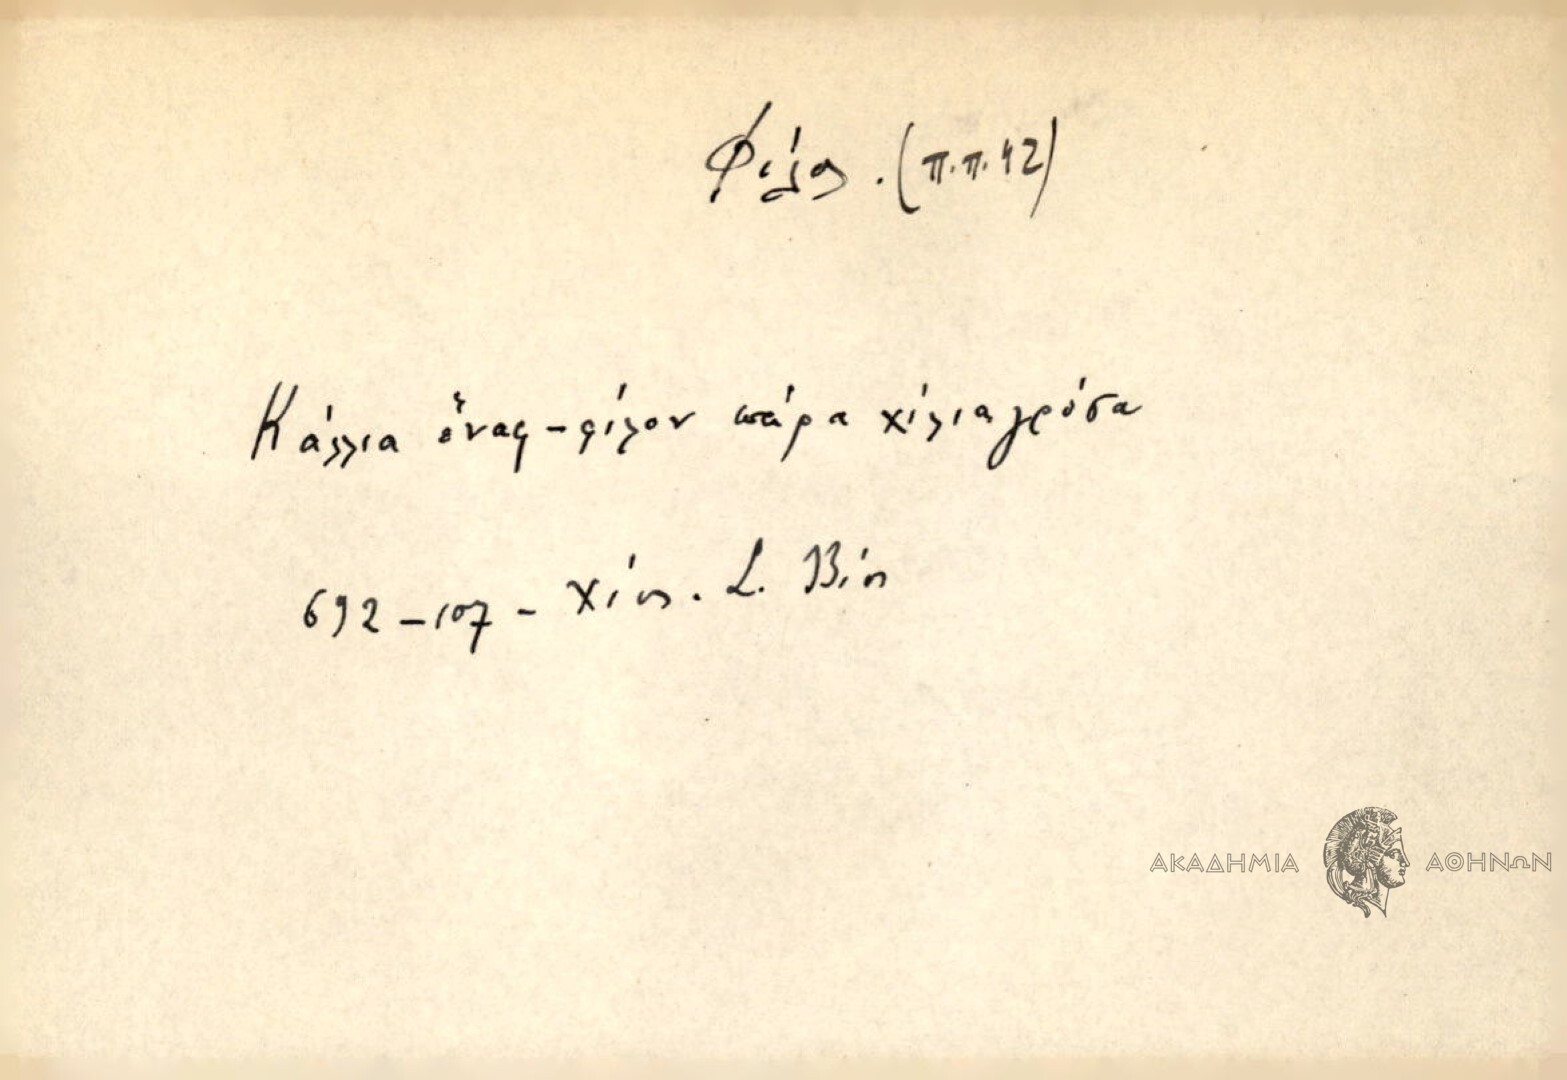 Φίλος. (π.π. 42)
Κάλλια ἕνας-φίλον πάρα χίλια γρόσα
692-107- Χίος. Σ. Βίος
ΑΚΑΔΗΜΙΑ ΑΘΗΝΩΝ